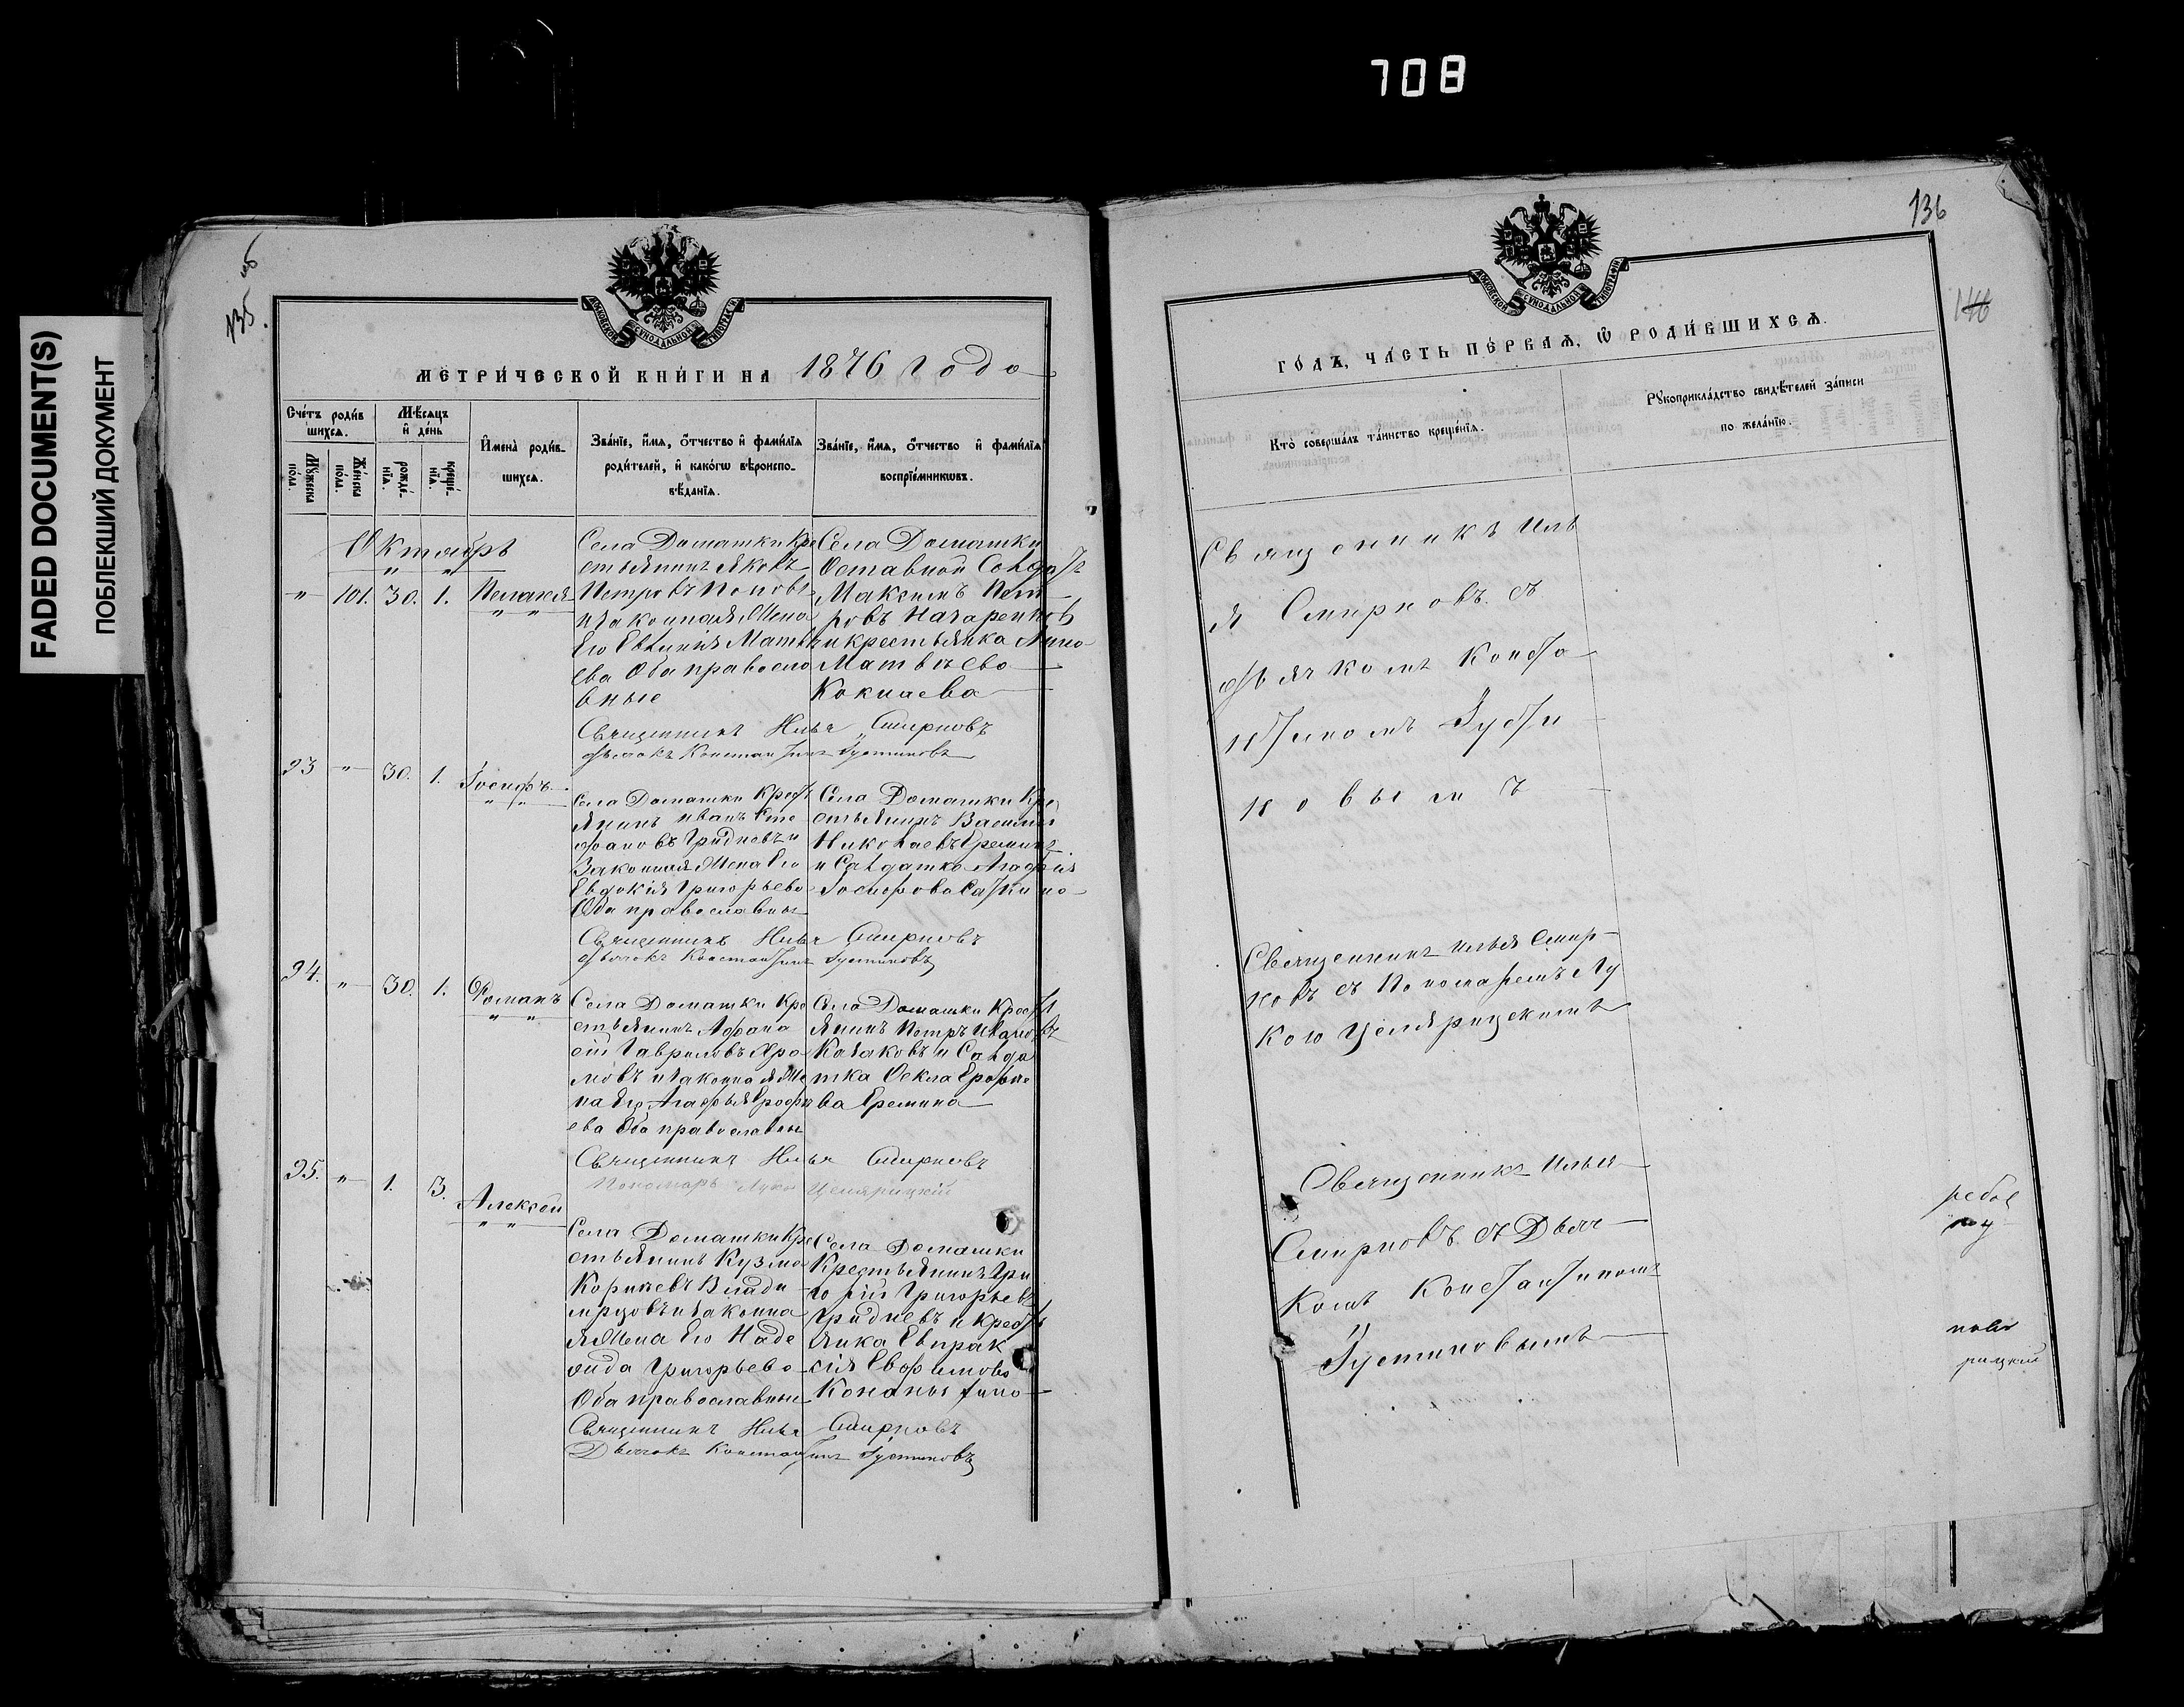 708
FADED DOCUMENT(S)
ПОБЛЕКШИЙ ДОКУМЕНТ
135.
МЕТРИ́ЧЕСКОЙ КНИ́ГИ НА 1876 года
Сче́тъ роди́вшихсѧ.
Мѣ́сѧцъ и҆ де́нь
Мꙋ́жеска по́ла.
Же́нска по́ла.
рожде́нїѧ.
креще́нїѧ.
И҆мена̀ роди́вшихсѧ.
Зва́нїе, и҆́мѧ, ѻ҆́тчество и҆ фами́лїѧ родителей, и҆ како́гѡ вѣроисповѣ́данїѧ.
Зва́нїе, и҆́мѧ, ѻ҆́тчество и҆ фами́лїѧ воспрїе́мникѡвъ.
Октябрь
" 101. 30. 1. Пелагея
Села Домашки Кре
стьянинъ Яковъ
Петровъ Поповъ
и законная Жена
Его Евгинія Матвѣ
ева Оба правосла
вные
Села Домашки
Оставной Солдатъ
Максимъ Пет
ровъ Назаренков
и крестьянка Анна
Матвѣева
Кокнаева
Священникъ Илья Смирновъ
Дьячокъ Константинъ Густиновъ
93 " 30. 1. Іосифъ
Села Домашки Кресть
янинъ Иванъ Сте
фановъ Гридневъ и
Законная Жена Его
Евдокія Григорьева
Оба православны
Села Домашки Кре
стьянинъ Василій
Николаевъ Еремин
и Солдатка Агафія
Іосифова Саткина
Священникъ Илья Смирновъ
Дьячокъ Константинъ Густиновъ
94. " 30. 1. Романъ
Села Домашки Кре
стьянинъ Афана
сій Гавриловъ Хра
мовъ и законная Же
на Его Агафья Ерофѣ
ева Оба православны
Села Домашки Кресть
янинъ Петръ Ивановъ
Казаковъ и Солда
тка Фекла Ерофѣе
ва Еремина
Священникъ Илья Смирновъ
Пономарь Лука Целярицкій
95. " 1. 3. Алексѣй
Села Домашки Кре
стьянинъ Кузма
Корнѣевъ Влади
мрцовъ и законна
я Жена Его Наде
жда Григорьева
Оба православны
Села Домашки
Крестьянинъ Гри
горій Григорьевъ
Гридневъ и кресть
янка Евпрак
сія Евфимова
Кононыхина
Священникъ Илья Смирновъ
Дьячокъ Константинъ Густиновъ
136
146
ГО́ДЪ, ЧА́СТЬ ПЕ́РВАѦ, Ѡ҆ РОДИ́ВШИХСѦ.
Кто̀ соверша́лъ та́инство креще́нїѧ.
Рꙋкоприкла́дство свидѣ́телей за́писи по жела́нїю.
Священникъ Иль
я Смирновъ съ
Дьячкомъ Конста
нтиномъ Густи
новымъ
Священникъ Илья Смир
новъ съ Пономаремъ Лу
кою Целярицкимъ
Священникъ Илья
Смирновъ съ Дьяч
комъ Константиномъ
Густиновымъ